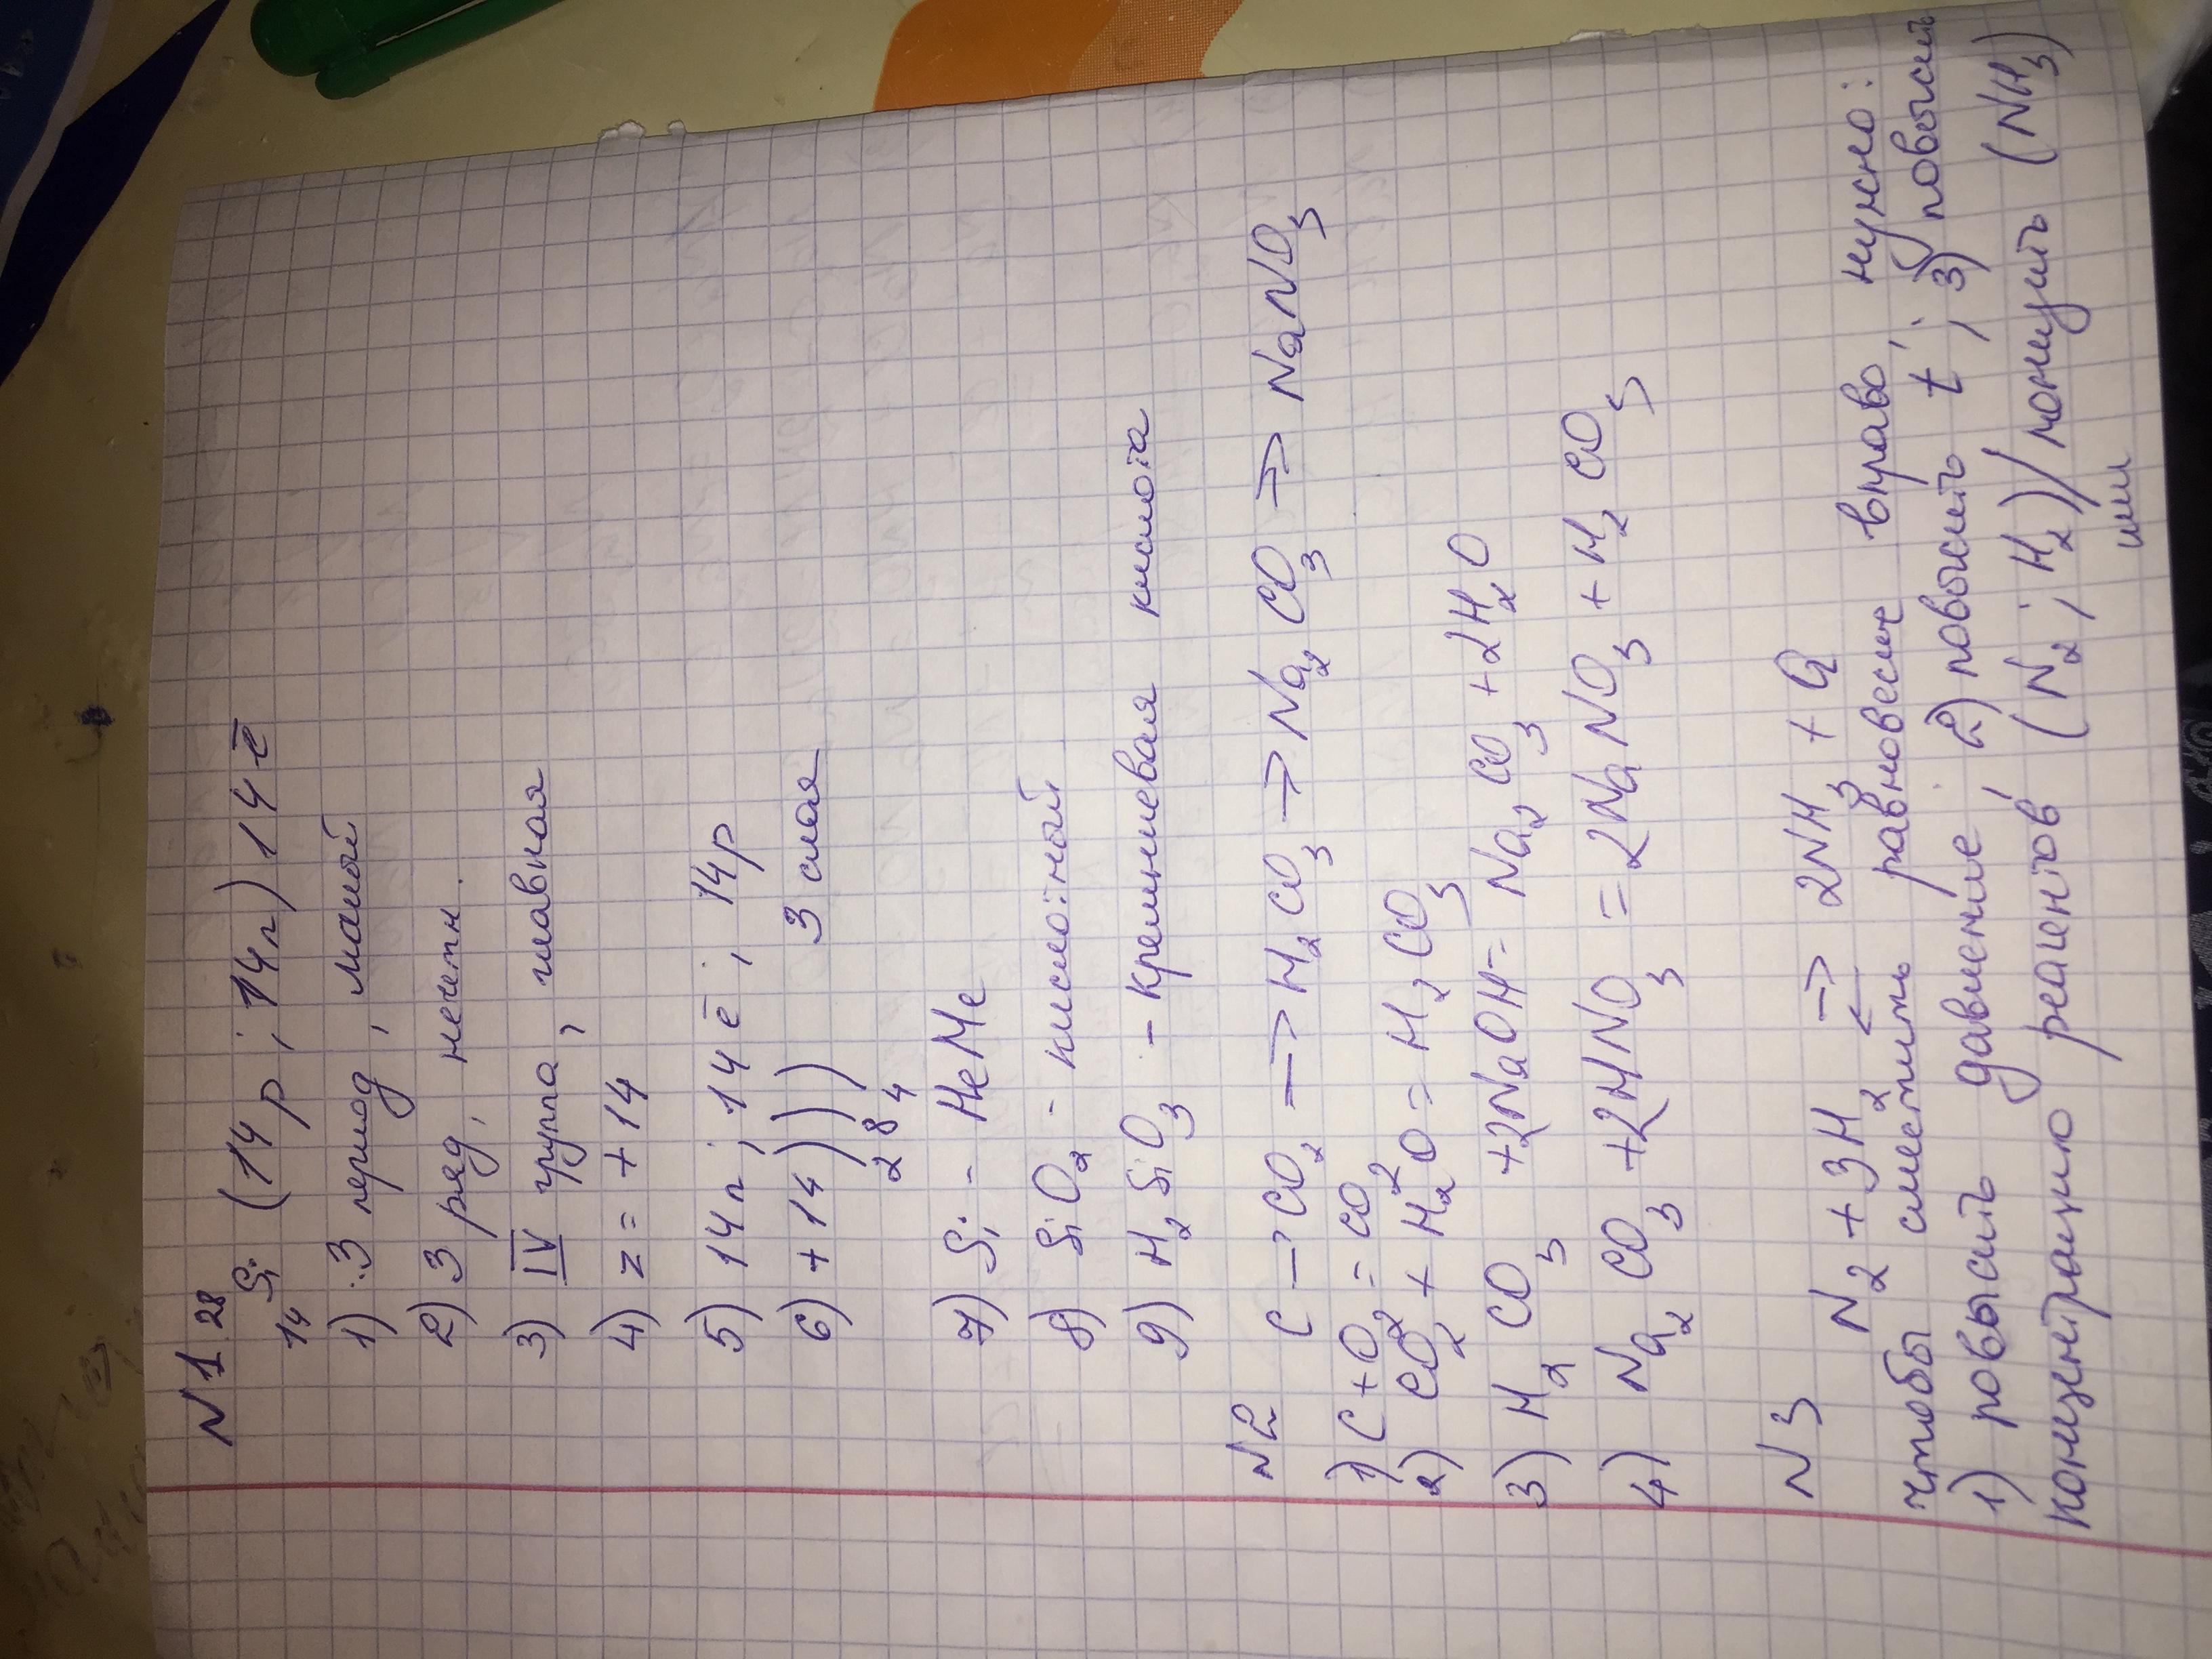 N1.
²⁸₁₄Si (14p; 14n) 14ē
1) 3 период, малый
2) 3 ряд, нечетн.
3) IV группа, главная
4) z = +14
5) 14n; 14ē; 14p
6) +14 ) ) ) 3 слоя
2 8 4
7) Si - НеМе
8) SiO₂ - кислотный
9) H₂SiO₃ - Кремниевая кислота
N2 C → CO₂ → H₂CO₃ → Na₂CO₃ → NaNO₃
1) C + O₂ = CO₂
2) CO₂ + H₂O = H₂CO₃
3) H₂CO₃ + 2NaOH = Na₂CO₃ + 2H₂O
4) Na₂CO₃ + 2HNO₃ = 2NaNO₃ + H₂CO₃
N3 N₂ + 3H₂ ⇄ 2NH₃ + Q
чтобы сместить равновесие вправо, нужно:
1) повысить давление; 2) повысить t; 3) повысить
концентрацию реагентов (N₂; H₂)/понизить (NH₃)
или